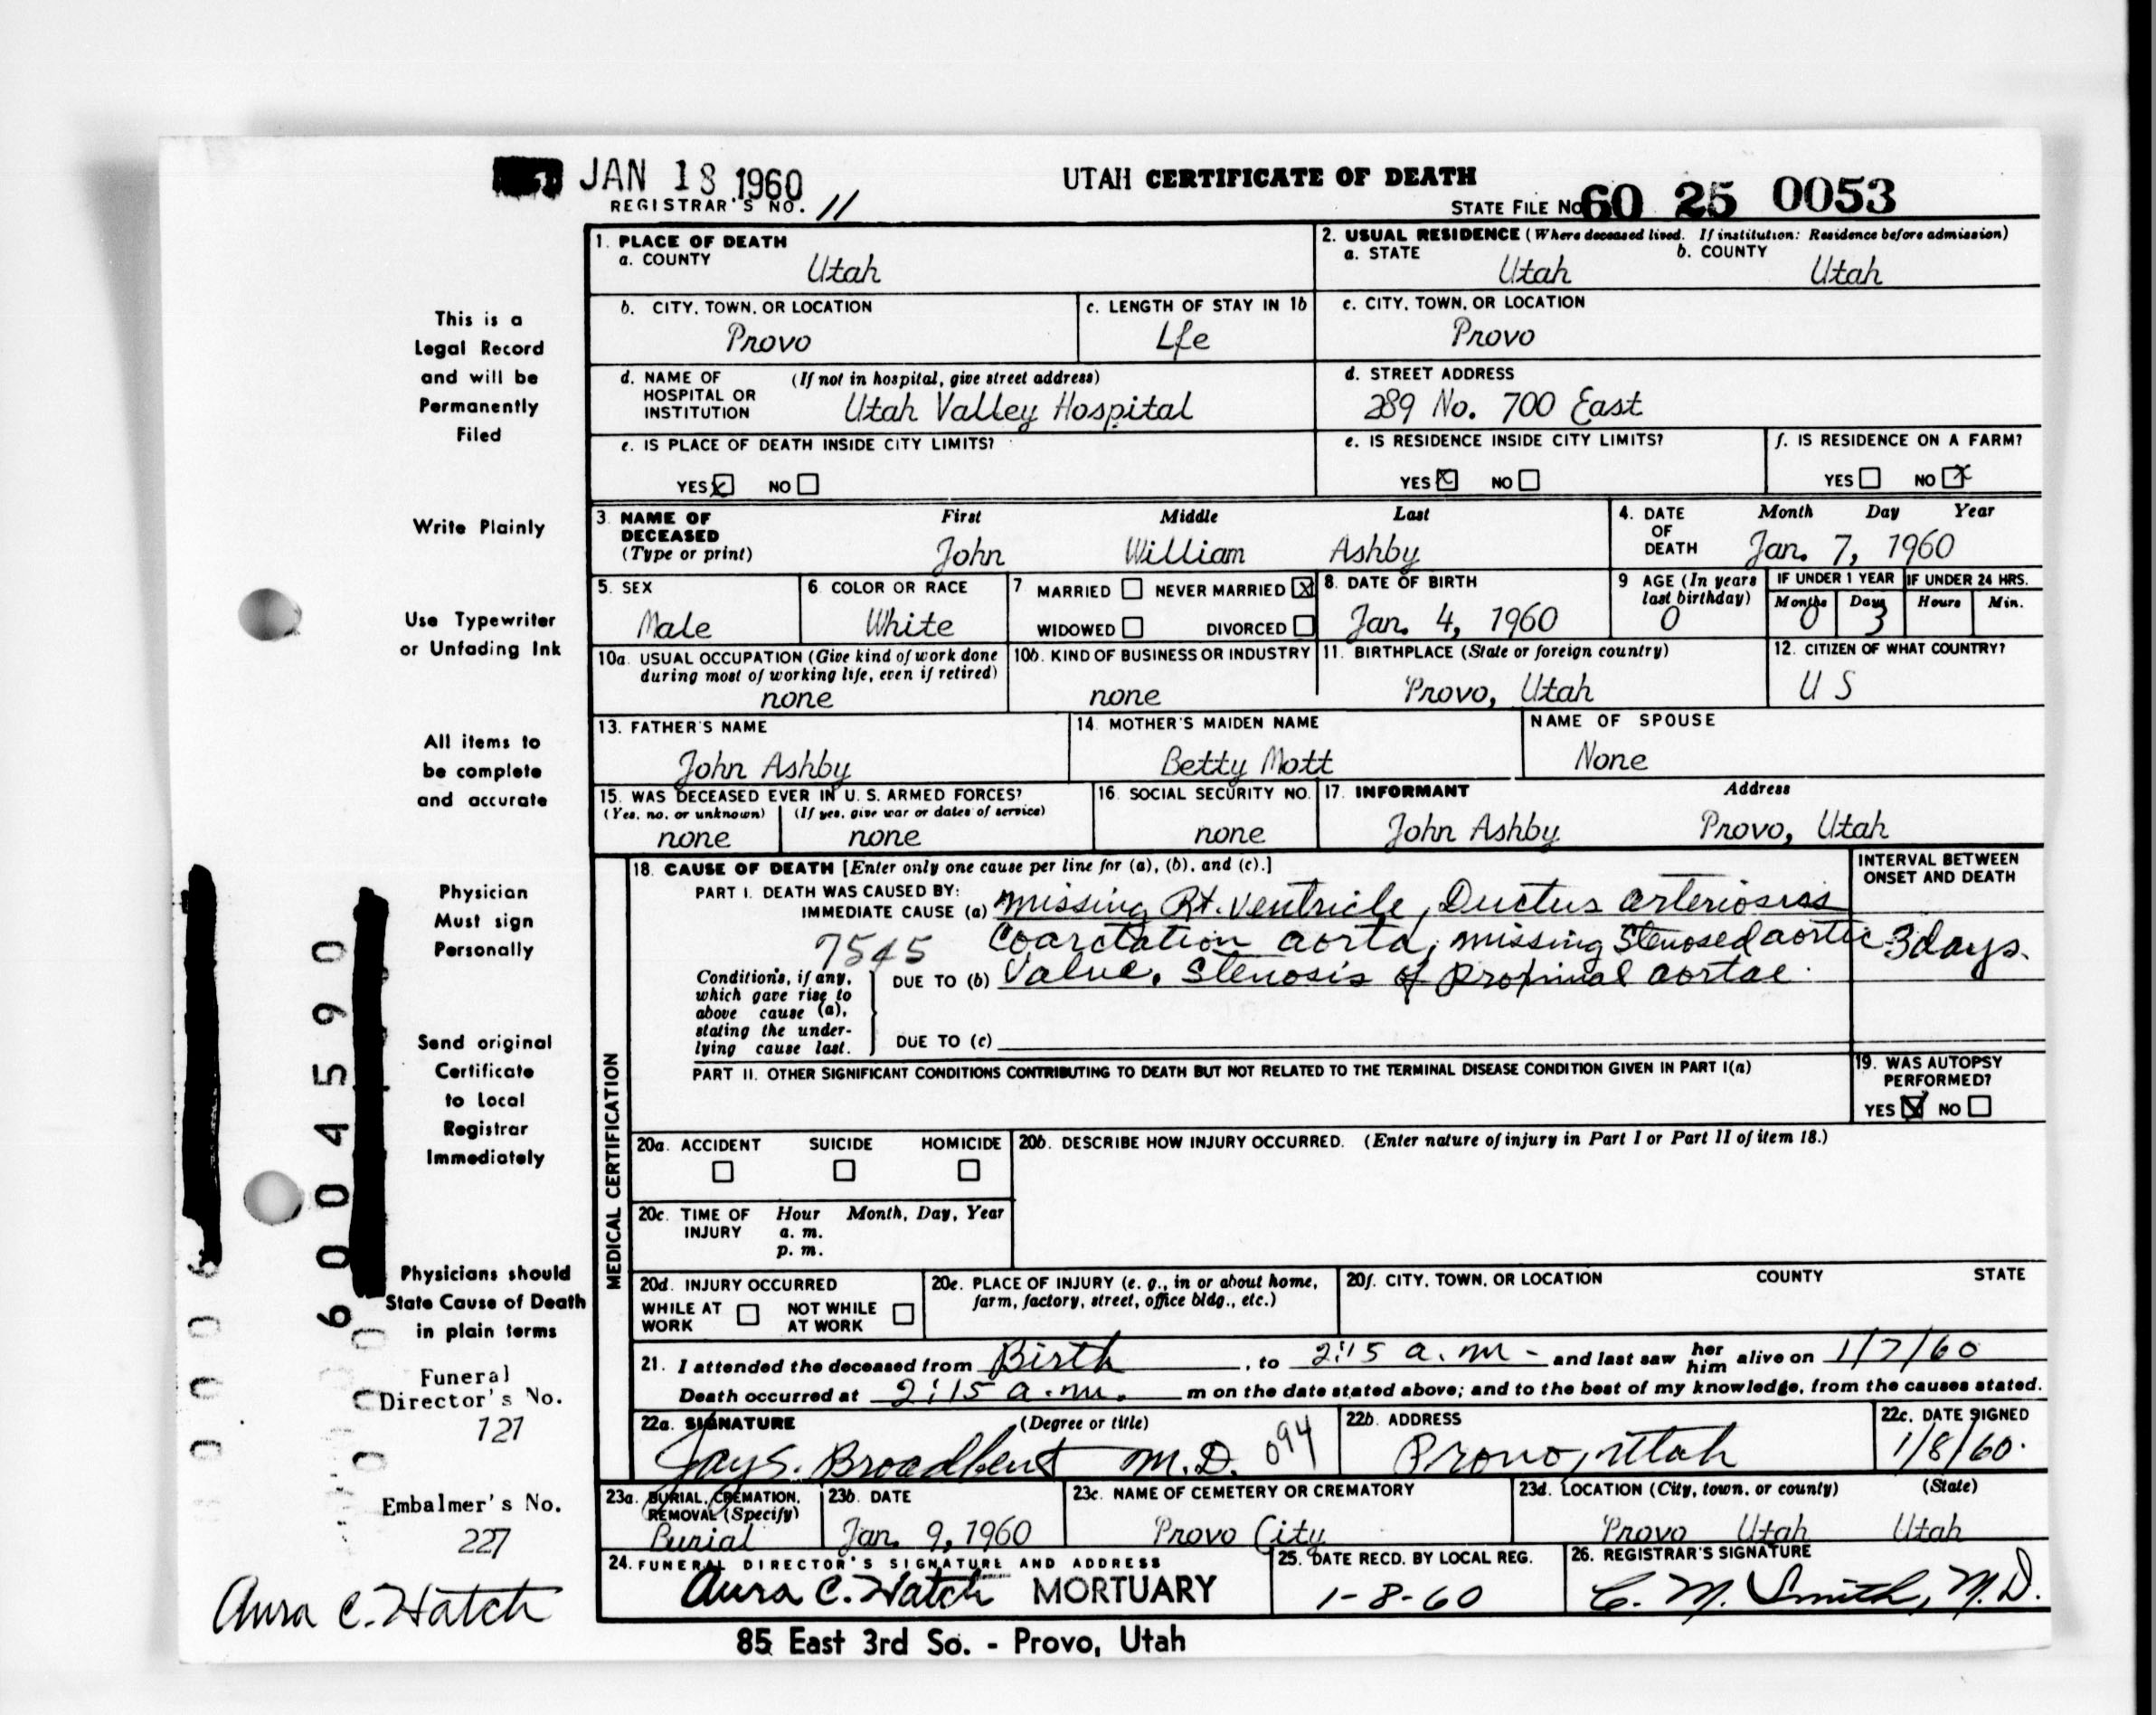 JAN 18 1960
UTAH CERTIFICATE OF DEATH
REGISTRAR'S NO. 11
STATE FILE NO 60 25 0053
1. PLACE OF DEATH
a. COUNTY
Utah
2. USUAL RESIDENCE (Where deceased lived. If institution: Residence before admission)
a. STATE Utah b. COUNTY Utah
b. CITY, TOWN, OR LOCATION
Provo
c. LENGTH OF STAY IN 1b
Lfe
c. CITY, TOWN, OR LOCATION
Provo
d. NAME OF HOSPITAL OR INSTITUTION (If not in hospital, give street address)
Utah Valley Hospital
d. STREET ADDRESS
289 No. 700 East
e. IS PLACE OF DEATH INSIDE CITY LIMITS?
YES X NO
e. IS RESIDENCE INSIDE CITY LIMITS?
YES X NO
f. IS RESIDENCE ON A FARM?
YES NO X
3. NAME OF DECEASED (Type or print)
First Middle Last
John William Ashby
4. DATE OF DEATH
Month Day Year
Jan. 7, 1960
5. SEX
Male
6. COLOR OR RACE
White
7 MARRIED NEVER MARRIED X
WIDOWED DIVORCED
8. DATE OF BIRTH
Jan. 4, 1960
9 AGE (In years last birthday)
0
IF UNDER 1 YEAR
Months Days
0 3
IF UNDER 24 HRS.
Hours Min.
10a. USUAL OCCUPATION (Give kind of work done during most of working life, even if retired)
none
10b. KIND OF BUSINESS OR INDUSTRY
none
11. BIRTHPLACE (State or foreign country)
Provo, Utah
12. CITIZEN OF WHAT COUNTRY?
U S
13. FATHER'S NAME
John Ashby
14. MOTHER'S MAIDEN NAME
Betty Mott
NAME OF SPOUSE
None
15. WAS DECEASED EVER IN U. S. ARMED FORCES?
(Yes, no, or unknown) (If yes, give war or dates of service)
none none
16. SOCIAL SECURITY NO.
none
17. INFORMANT Address
John Ashby Provo, Utah
MEDICAL CERTIFICATION
18. CAUSE OF DEATH [Enter only one cause per line for (a), (b), and (c).]
INTERVAL BETWEEN ONSET AND DEATH
PART I. DEATH WAS CAUSED BY:
IMMEDIATE CAUSE (a) missing Rt. ventricle, Ductus arteriosis
7545 Coarctation aorta, missing Stenosed aortic 3 days.
Conditions, if any, which gave rise to above cause (a), stating the underlying cause last.
DUE TO (b) Valve. Stenosis of proximal aortae.
DUE TO (c)
PART II. OTHER SIGNIFICANT CONDITIONS CONTRIBUTING TO DEATH BUT NOT RELATED TO THE TERMINAL DISEASE CONDITION GIVEN IN PART I(a)
19. WAS AUTOPSY PERFORMED?
YES X NO
20a. ACCIDENT SUICIDE HOMICIDE
20b. DESCRIBE HOW INJURY OCCURRED. (Enter nature of injury in Part I or Part II of item 18.)
20c. TIME OF INJURY Hour Month, Day, Year
a. m.
p. m.
20d. INJURY OCCURRED
WHILE AT WORK NOT WHILE AT WORK
20e. PLACE OF INJURY (e. g., in or about home, farm, factory, street, office bldg., etc.)
20f. CITY, TOWN, OR LOCATION COUNTY STATE
21. I attended the deceased from Birth, to 2:15 a.m - and last saw her him alive on 1/7/60
Death occurred at 2:15 a.m. m on the date stated above; and to the best of my knowledge, from the causes stated.
22a. SIGNATURE (Degree or title)
Jay S. Broadbent M.D. 094
22b. ADDRESS
Provo, Utah
22c. DATE SIGNED
1/8/60.
23a. BURIAL, CREMATION, REMOVAL (Specify)
Burial
23b. DATE
Jan. 9, 1960
23c. NAME OF CEMETERY OR CREMATORY
Provo City
23d. LOCATION (City, town, or county) (State)
Provo Utah Utah
24. FUNERAL DIRECTOR'S SIGNATURE AND ADDRESS
Aura C. Hatch MORTUARY
25. DATE RECD. BY LOCAL REG.
1-8-60
26. REGISTRAR'S SIGNATURE
C. M. Smith, M.D.
85 East 3rd So. - Provo, Utah
This is a
Legal Record
and will be
Permanently
Filed
Write Plainly
Use Typewriter
or Unfading Ink
All items to
be complete
and accurate
Physician
Must sign
Personally
Send original
Certificate
to Local
Registrar
Immediately
Physicians should
State Cause of Death
in plain terms
Funeral
Director's No.
121
Embalmer's No.
227
Aura C. Hatch
6004590